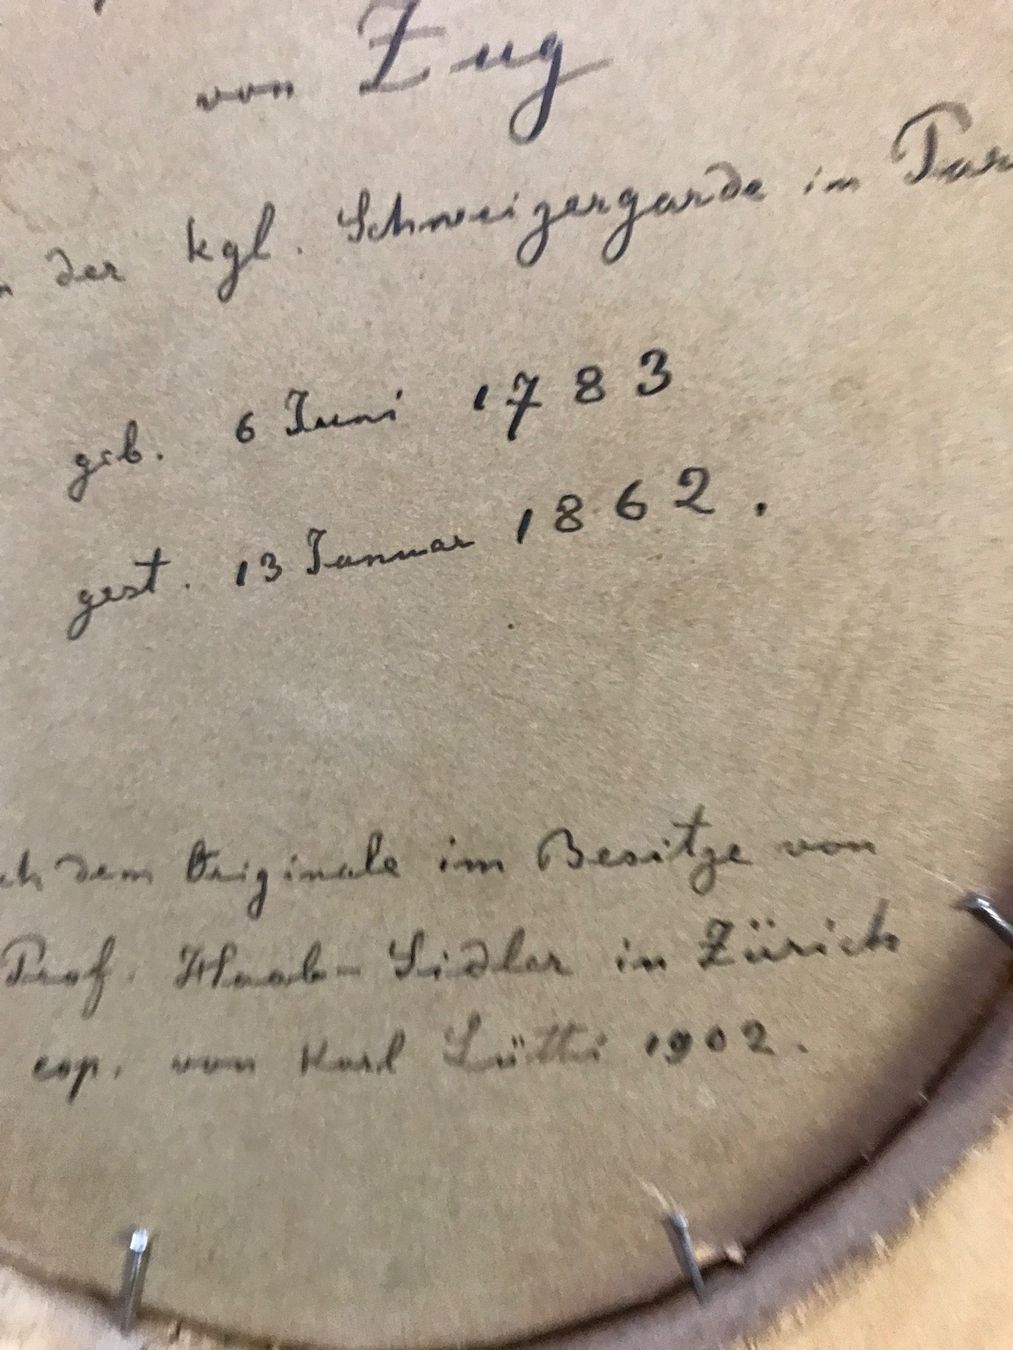 von Zug
der kgl. Schweizergarde in Par
geb. 6 Juni 1783
gest. 13 Januar 1862.
ch dem Originale im Besitze von
Prof. Haab-Sidler in Zürich
cop. von Karl Lütti 1902.